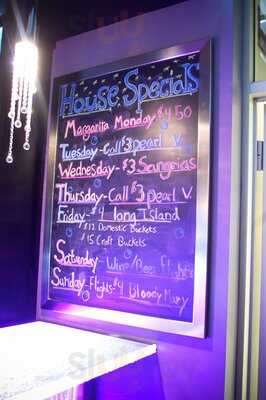 House Specials
Margarita Monday $4.50
Tuesday - Call $3 pearl V.
Wednesday - $3 Sangrias
Thursday - Call $3 pearl V
Friday - $4 long Island
$12 Domestic Buckets
$15 Craft Buckets
Saturday - Wine/Beer Flights
Sunday - Flights $4 Bloody Mary
sluy
sluy